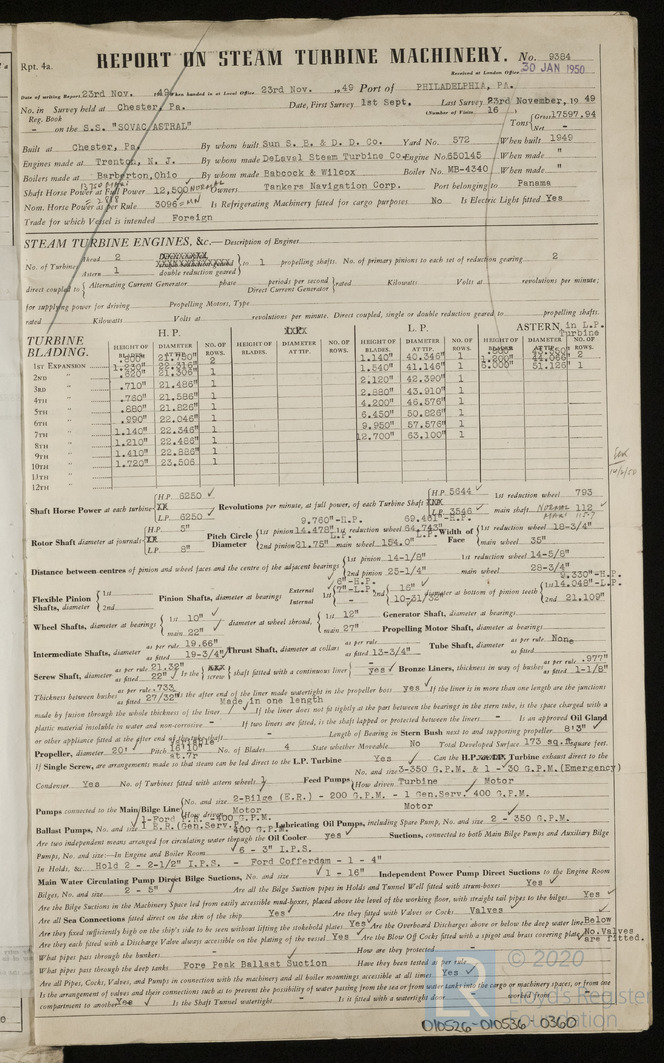 Rpt. 4a.
REPORT ON STEAM TURBINE MACHINERY. No. 9384
Received at London Office 30 JAN 1950
Date of writing Report 23rd Nov. 1949 When handed in at Local Office 23rd Nov. 1949 Port of PHILADELPHIA, PA.
No. in Survey held at Chester, Pa. Date, First Survey 1st Sept. Last Survey 23rd November, 1949
Reg. Book (Number of Visits 16)
- on the S.S. "SOVAC ASTRAL" Tons Gross 17597.94 Net -
Built at Chester, Pa. By whom built Sun S. B. & D. D. Co. Yard No. 572 When built 1949
Engines made at Trenton, N. J. By whom made DeLaval Steam Turbine Co. Engine No. 650145 When made "
Boilers made at Barberton, Ohio By whom made Babcock & Wilcox Boiler No. MB-4340 When made "
Shaft Horse Power at Full Power 12,500 NORMAL Owners Tankers Navigation Corp. Port belonging to Panama
Nom. Horse Power as per Rule 3096 = MN Is Refrigerating Machinery fitted for cargo purposes No Is Electric Light fitted Yes
Trade for which Vessel is intended Foreign
STEAM TURBINE ENGINES, &c.—Description of Engines
No. of Turbines Ahead 2 Astern 1 double reduction geared to 1 propelling shafts. No. of primary pinions to each set of reduction gearing 2
direct coupled to Alternating Current Generator phase periods per second Direct Current Generator rated Kilowatts Volts at revolutions per minute;
for supplying power for driving Propelling Motors, Type
rated Kilowatts Volts at revolutions per minute. Direct coupled, single or double reduction geared to propelling shafts.
TURBINE BLADING. H. P. L. P. ASTERN in L.P. Turbine
HEIGHT OF BLADES. DIAMETER AT TIP. NO. OF ROWS. HEIGHT OF BLADES. DIAMETER AT TIP. NO. OF ROWS. HEIGHT OF BLADES. DIAMETER AT TIP. NO. OF ROWS. NO. OF ROWS.
1ST EXPANSION 2 1.140" 40.346" 1 2
2ND 1 1.540" 41.146" 1 51.126" 1
3RD .710" 21.486" 1 2.120" 42.390" 1
4TH .760" 21.586" 1 2.880" 43.910" 1
5TH .880" 21.826" 1 4.200" 46.576" 1
6TH .990" 22.046" 1 6.450" 50.826" 1
7TH 1.140" 22.346" 1 9.950" 57.576" 1
8TH 1.210" 22.486" 1 12.700" 63.100" 1
9TH 1.410" 22.886" 1
10TH 1.720" 23.506 1
11TH
12TH
Shaft Horse Power at each turbine H.P. 6250 L.P. 6250 Revolutions per minute, at full power, of each Turbine Shaft H.P. 5644 L.P. 3546 1st reduction wheel 793 main shaft NORMAL 112
Rotor Shaft diameter at journals H.P. 5" L.P. 8" Pitch Circle Diameter 9.760"-H.P. 1st pinion 14.478" L.P. 2nd pinion 21.75" 1st reduction wheel 64.743" L.P. main wheel 154.0" Width of Face 1st reduction wheel 18-3/4" main wheel 35"
Distance between centres of pinion and wheel faces and the centre of the adjacent bearings 1st pinion 14-1/8" 2nd pinion 25-1/4" 1st reduction wheel 14-5/8" main wheel 28-3/4"
Flexible Pinion Shafts, diameter 1st 2nd Pinion Shafts, diameter at bearings External Internal 1st 6"-H.P. 7"-L.P. - 2nd 16" 10-31/32" diameter at bottom of pinion teeth 1st 9.330"-H.P. 14.048"-L.P. 2nd 21.109"
Wheel Shafts, diameter at bearings 1st 10" main 22" diameter at wheel shroud, 1st 12" main 27" Generator Shaft, diameter at bearings Propelling Motor Shaft, diameter at bearings
Intermediate Shafts, diameter as per rule 19.66" as fitted 19-3/4" Thrust Shaft, diameter at collars as per rule as fitted 13-3/4" Tube Shaft, diameter as per rule None as fitted
Screw Shaft, diameter as per rule 21.32" as fitted 22" Is the screw shaft fitted with a continuous liner yes Bronze Liners, thickness in way of bushes as per rule .977" as fitted 1-1/8"
Thickness between bushes as per rule .733 as fitted 27/32" Is the after end of the liner made watertight in the propeller boss yes If the liner is in more than one length are the junctions
made by fusion through the whole thickness of the liner Made in one length If the liner does not fit tightly at the part between the bearings in the stern tube, is the space charged with a
plastic material insoluble in water and non-corrosive - If two liners are fitted, is the shaft lapped or protected between the liners - Is an approved Oil Gland
or other appliance fitted at the after end of the tube shaft - Length of Bearing in Stern Bush next to and supporting propeller 8'3"
Propeller, diameter 20' Pitch Variable 16'10" at .7r No. of Blades 4 State whether Moveable No Total Developed Surface 173 sq.ft. square feet.
If Single Screw, are arrangements made so that steam can be led direct to the L.P. Turbine Yes Can the H.P. Turbine exhaust direct to the
Condenser Yes No. of Turbines fitted with astern wheels 1 Feed Pumps No. and size 3-350 G.P.M. & 1 - 30 G.P.M. (Emergency) How driven Turbine Motor
Pumps connected to the Main Bilge Line No. and size 2-Bilge (E.R.) - 200 G.P.M. - 1 Gen.Serv. 400 G.P.M. How driven Motor Motor
Ballast Pumps, No. and size 1-Ford P.R.-400 G.P.M. 1 E.R.(Gen.Serv.P. 400 G.P.M. Lubricating Oil Pumps, including Spare Pump, No. and size 2 - 350 G.P.M.
Are two independent means arranged for circulating water through the Oil Cooler yes Suctions, connected to both Main Bilge Pumps and Auxiliary Bilge
Pumps, No. and size:—In Engine and Boiler Room 6 - 3" I.P.S.
In Holds, &c. Hold 2 - 2-1/2" I.P.S. - Ford Cofferdam - 1 - 4"
Main Water Circulating Pump Direct Bilge Suctions, No. and size 1 - 16" Independent Power Pump Direct Suctions to the Engine Room
Bilges, No. and size 2 - 5" Are all the Bilge Suction pipes in Holds and Tunnel Well fitted with strum-boxes Yes
Are the Bilge Suctions in the Machinery Space led from easily accessible mud-boxes, placed above the level of the working floor, with straight tail pipes to the bilges Yes
Are all Sea Connections fitted direct on the skin of the ship Yes Are they fitted with Valves or Cocks Valves
Are they fixed sufficiently high on the ship's side to be seen without lifting the stokehold plates Yes Are the Overboard Discharges above or below the deep water line Below
Are they each fitted with a Discharge Valve always accessible on the plating of the vessel Yes Are the Blow Off Cocks fitted with a spigot and brass covering plate No. Valves are fitted.
What pipes pass through the bunkers - How are they protected -
What pipes pass through the deep tanks Fore Peak Ballast Suction Have they been tested as per rule
Are all Pipes, Cocks, Valves, and Pumps in connection with the machinery and all boiler mountings accessible at all times Yes
Is the arrangement of valves and their connections such as to prevent the possibility of water passing from the sea or from water tanks into the cargo or machinery spaces, or from one
compartment to another Yes Is the Shaft Tunnel watertight - Is it fitted with a watertight door worked from
LR © 2020
Lloyd's Register Foundation
010526-010536-0360